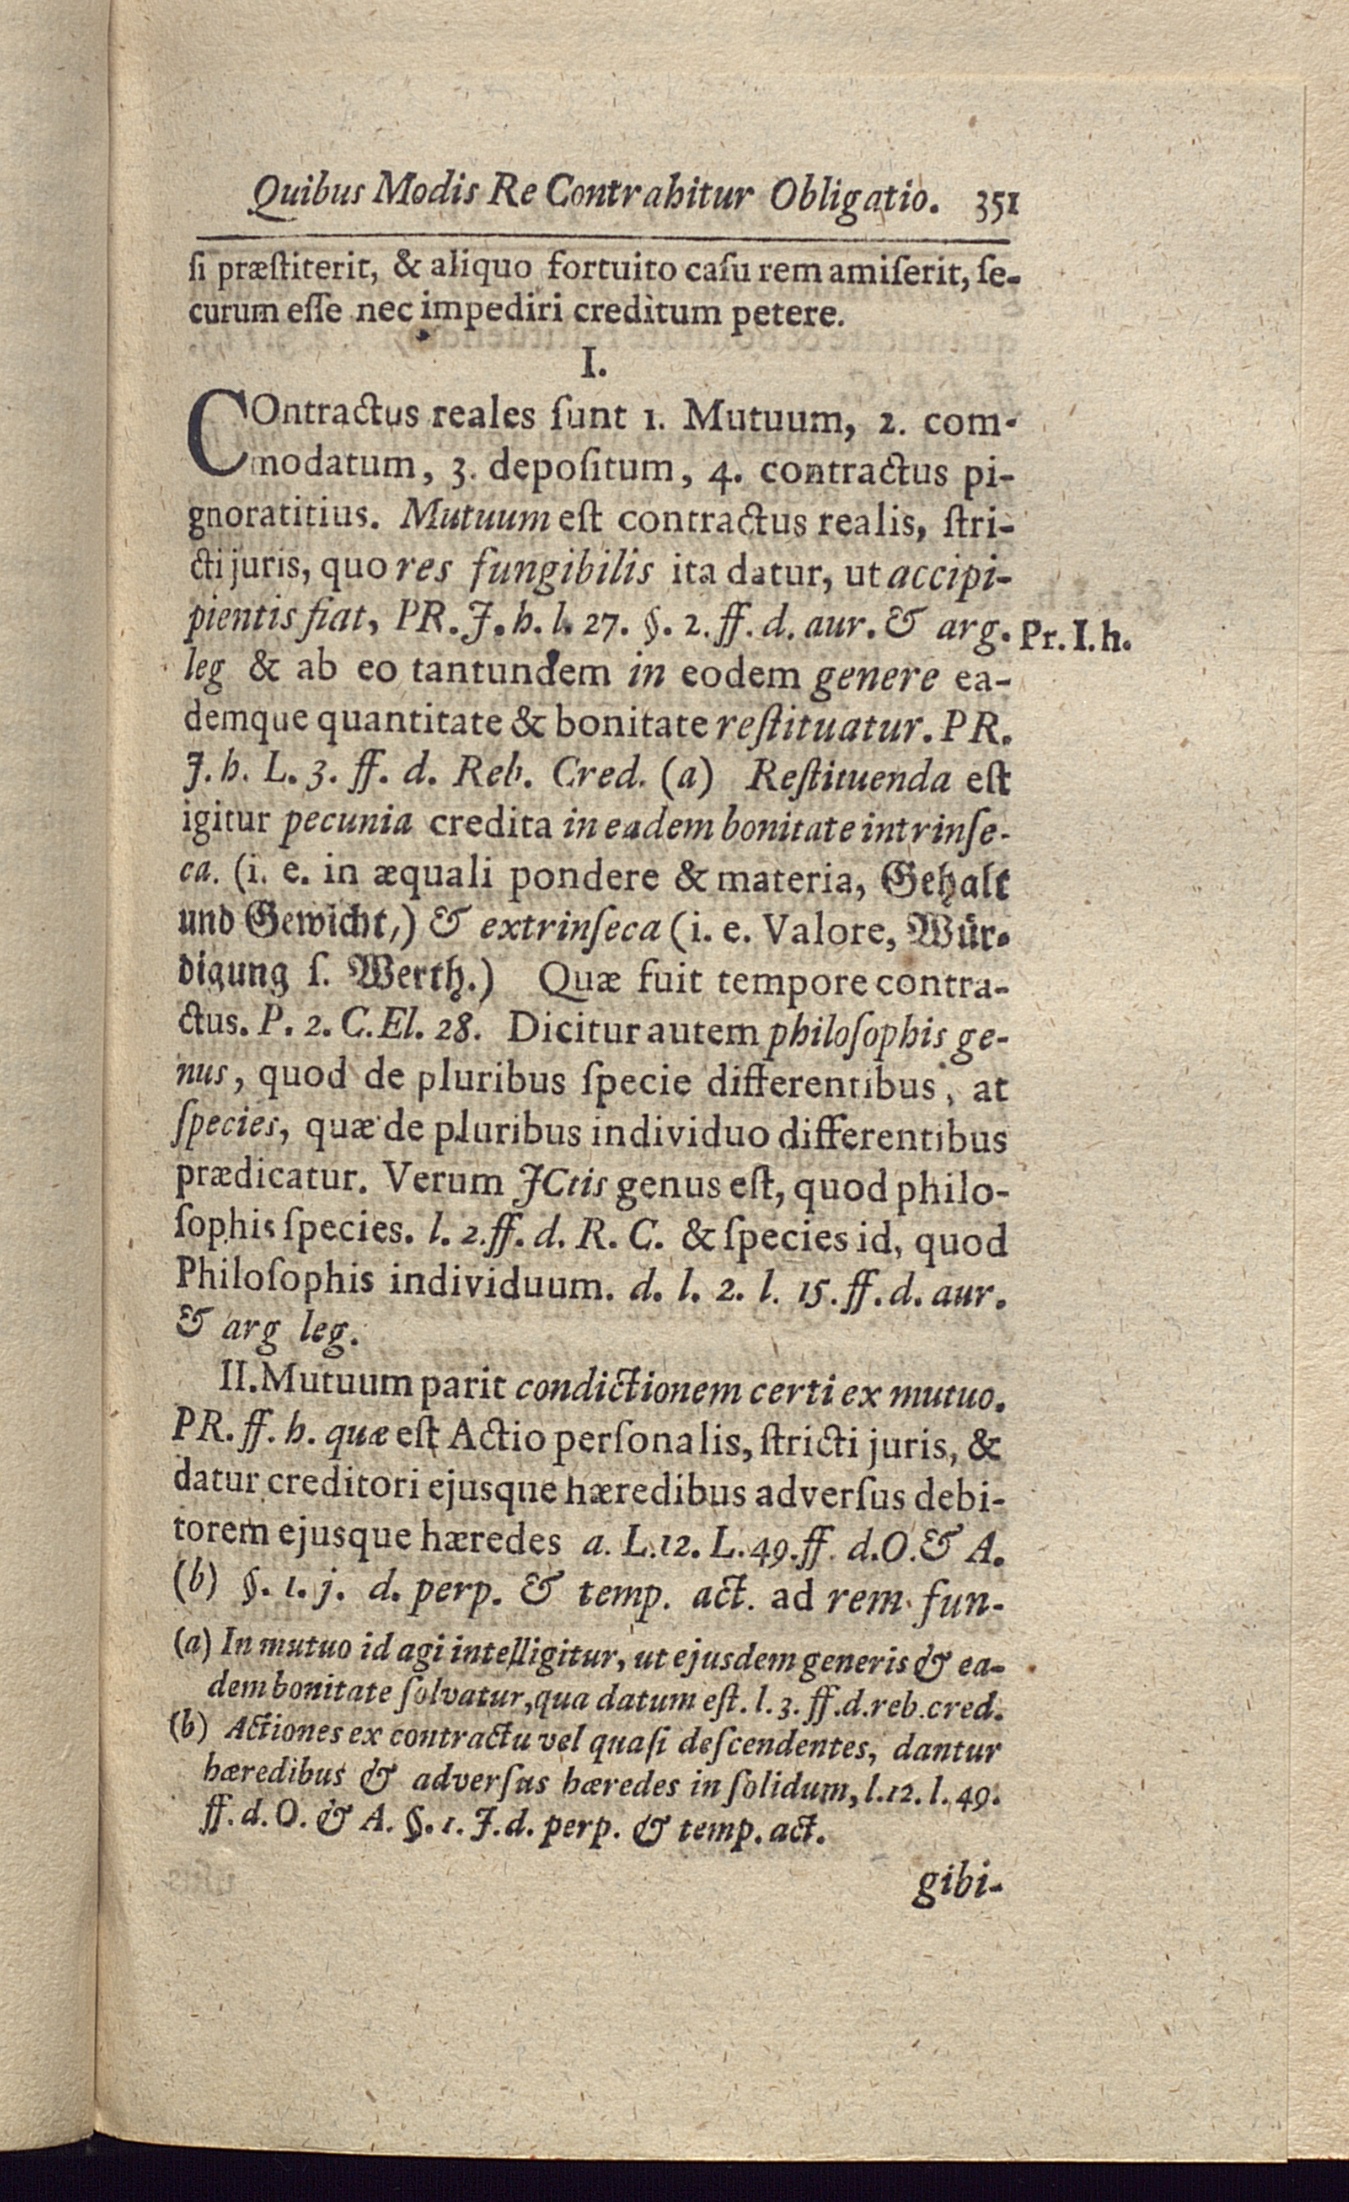 Quibus Modis Re Contrahitur Obligatio. 351
ſi præſtiterit, & aliquo fortuito caſu rem amiſerit, ſe-
curum eſſe nec impediri creditum petere.
I.
COntractus reales ſunt 1. Mutuum, 2. com-
modatum, 3. depoſitum, 4. contractus pi-
gnoratitius. Mutuum eſt contractus realis, ſtri-
cti juris, quo res fungibilis ita datur, ut accipi-
pientis fiat, PR. J. h. l. 27. §. 2. ff. d. aur. & arg. Pr. I. h.
leg & ab eo tantundem in eodem genere ea-
demque quantitate & bonitate reſtituatur. PR.
J. h. L. 3. ff. d. Reb. Cred. (a) Reſtituenda eſt
igitur pecunia credita in eadem bonitate intrinſe-
ca. (i. e. in æquali pondere & materia, Gehalt
und Gewicht,) & extrinſeca (i. e. Valore, Wür-
digung ſ. Werth.) Quæ fuit tempore contra-
ctus. P. 2. C. El. 28. Dicitur autem philoſophis ge-
nus, quod de pluribus ſpecie differentibus, at
ſpecies, quæ de pluribus individuo differentibus
prædicatur. Verum JCtis genus eſt, quod philo-
ſophis ſpecies. l. 2. ff. d. R. C. & ſpecies id, quod
Philoſophis individuum. d. l. 2. l. 15. ff. d. aur.
& arg leg.
II. Mutuum parit condictionem certi ex mutuo.
PR. ff. h. quæ eſt Actio perſonalis, ſtricti juris, &
datur creditori ejusque hæredibus adverſus debi-
torem ejusque hæredes a. L. 12. L. 49. ff. d. O. & A.
(b) §. 1. j. d. perp. & temp. act. ad rem fun-
(a) In mutuo id agi intelligitur, ut ejusdem generis & ea-
dem bonitate ſolvatur, qua datum eſt. l. 3. ff. d. reb. cred.
(b) Actiones ex contractu vel quaſi deſcendentes, dantur
hæredibus & adverſus hæredes in ſolidum, l. 12. l. 49.
ff. d. O. & A. §. 1. J. d. perp. & temp. act.
gibi-